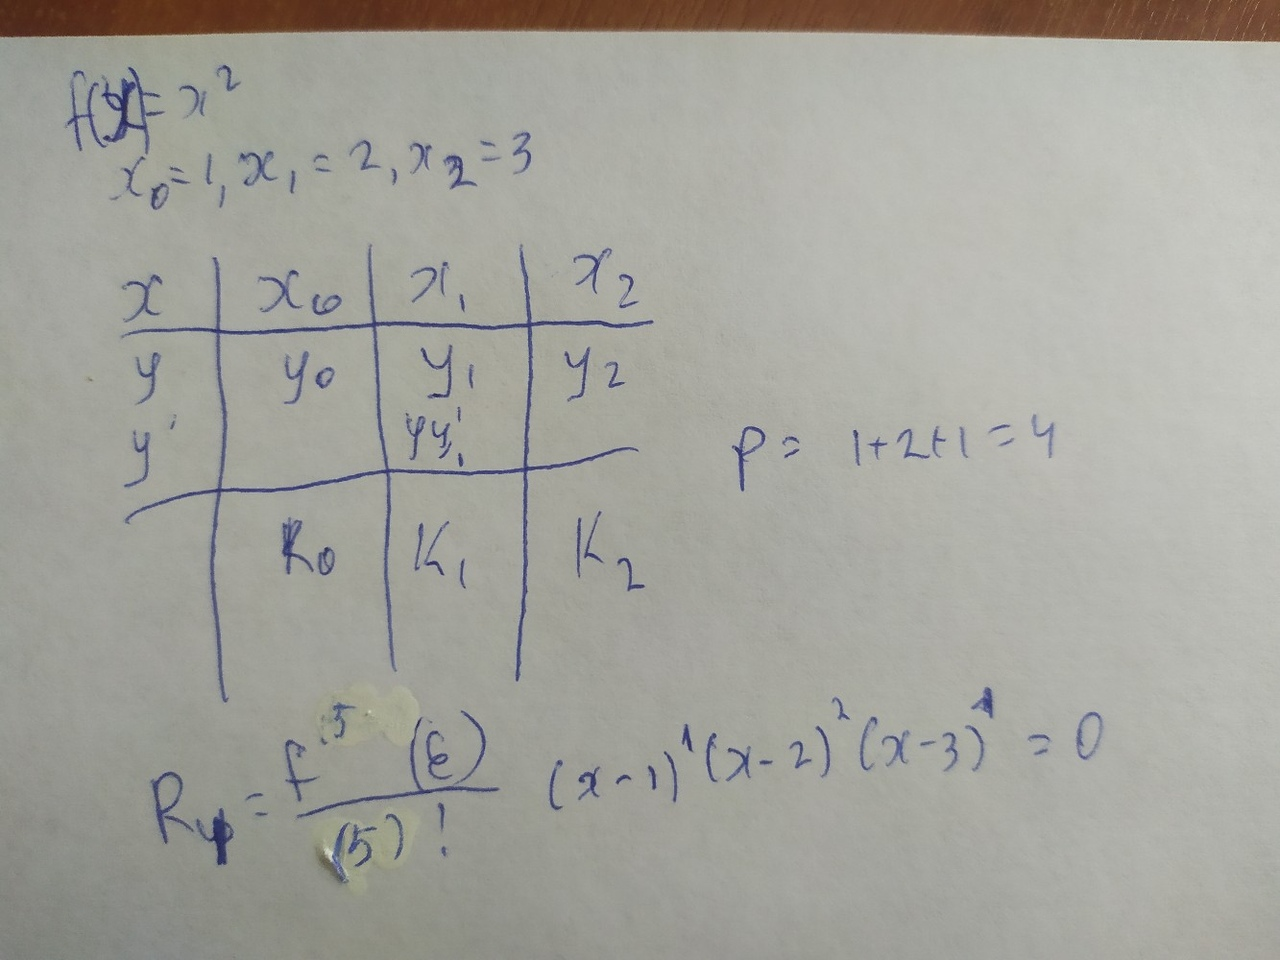 f(x)=x²
x₀=1, x₁=2, x₂=3
x x₀ x₁ x₂
y y₀ y₁ y₂
y' y₁'
p = 1+2+1=4
K₀ K₁ K₂
R₄ = f⁵(ε) / (5)! (x-1)¹(x-2)²(x-3)¹ = 0